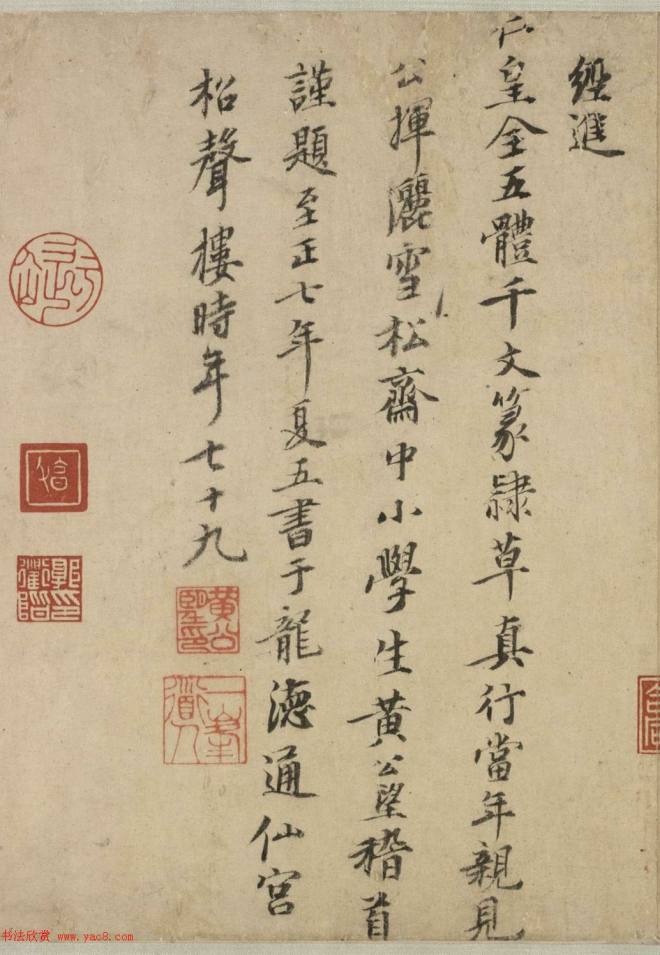 經進
仁皇全五體千文篆隸草真行當年親見
公揮灑雪松齋中小學生黃公望稽首
謹題至正七年夏五書于龍德通仙宮
松聲樓時年七十九
黃公望印
一峯道人
书法欣赏 www.yac8.com